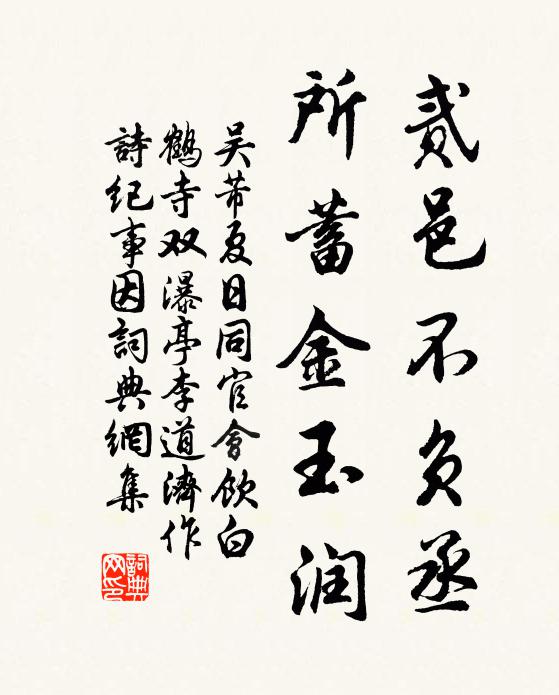 贰邑不负丞
所蓄金玉润
吴芾夏日同官會飲白
鶴寺双瀑亭李道濟作
詩纪事因詞典網集
詞典
网印